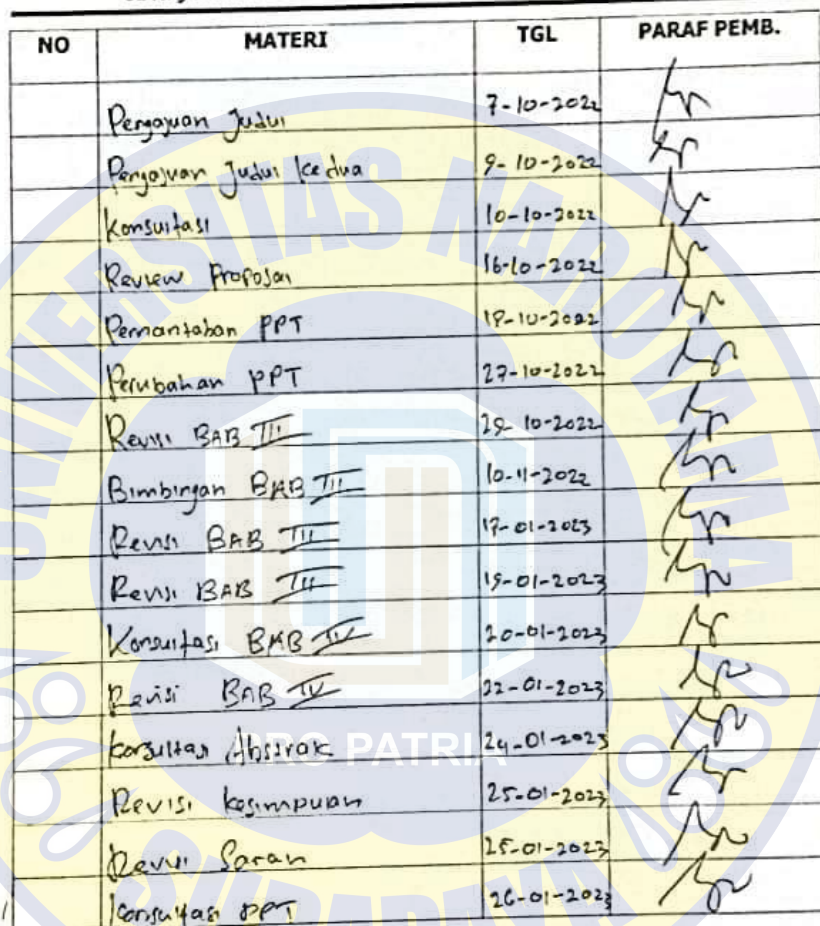 NO MATERI TGL PARAF PEMB.
Pengajuan Judul 7-10-2022
Pengajuan Judul kedua 9-10-2022
Konsultasi 10-10-2022
Review Proposal 16-10-2022
Pemantaban PPT 18-10-2022
Perubahan PPT 27-10-2022
Revisi BAB III 29-10-2022
Bimbingan BAB III 10-11-2022
Revisi BAB III 17-01-2023
Revisi BAB III 19-01-2023
Konsultasi BAB IV 20-01-2023
Revisi BAB IV 22-01-2023
Konsultasi Abstrak 24-01-2023
Revisi kesimpulan 25-01-2023
Revisi Saran 25-01-2023
Konsultasi PPT 26-01-2023
UNIVERSITAS NAROTAMA
PRO PATRIA
SURABAYA